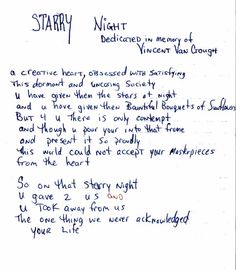 STARRY NIGHT
Dedicated in memory of
Vincent Van Gough
a creative heart, obsessed with satisfying
This dormant and uncaring Society
u have given them the stars at night
and u have given them Bountiful Bouquets of Sunflowers
But 4 u There is only contempt
and though u pour your into that frame
and present it so proudly
This world could not accept your Masterpieces
from the heart
So on that starry Night
u gave 2 us and
u took away from us
The one thing we never acknowledged
your Life